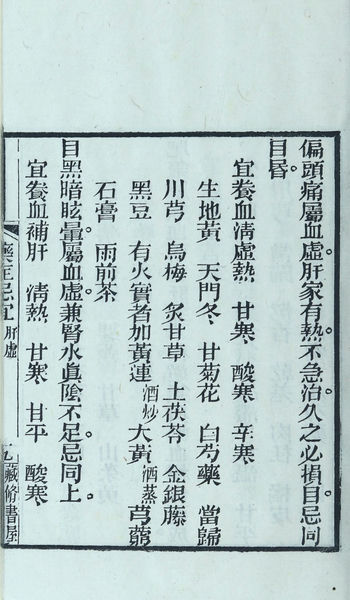 偏頭痛屬血虛。肝家有熱。不急治。久之必損目。忌同
目昏。
宜養血清虛熱　甘寒　酸寒　辛寒
生地黃　天門冬　甘菊花　白芍藥　當歸
川芎　烏梅　炙甘草　土茯苓　金銀藤
黑豆　有火實者加黃連酒炒　大黃酒蒸　芎藭
石膏　雨前茶
目黑暗眩暈。屬血虛。兼腎水眞陰不足。忌同上。
宜養血補肝　清熱　甘寒　甘平　酸寒
藥症忌宜　肝虛　五　藏脩書屋